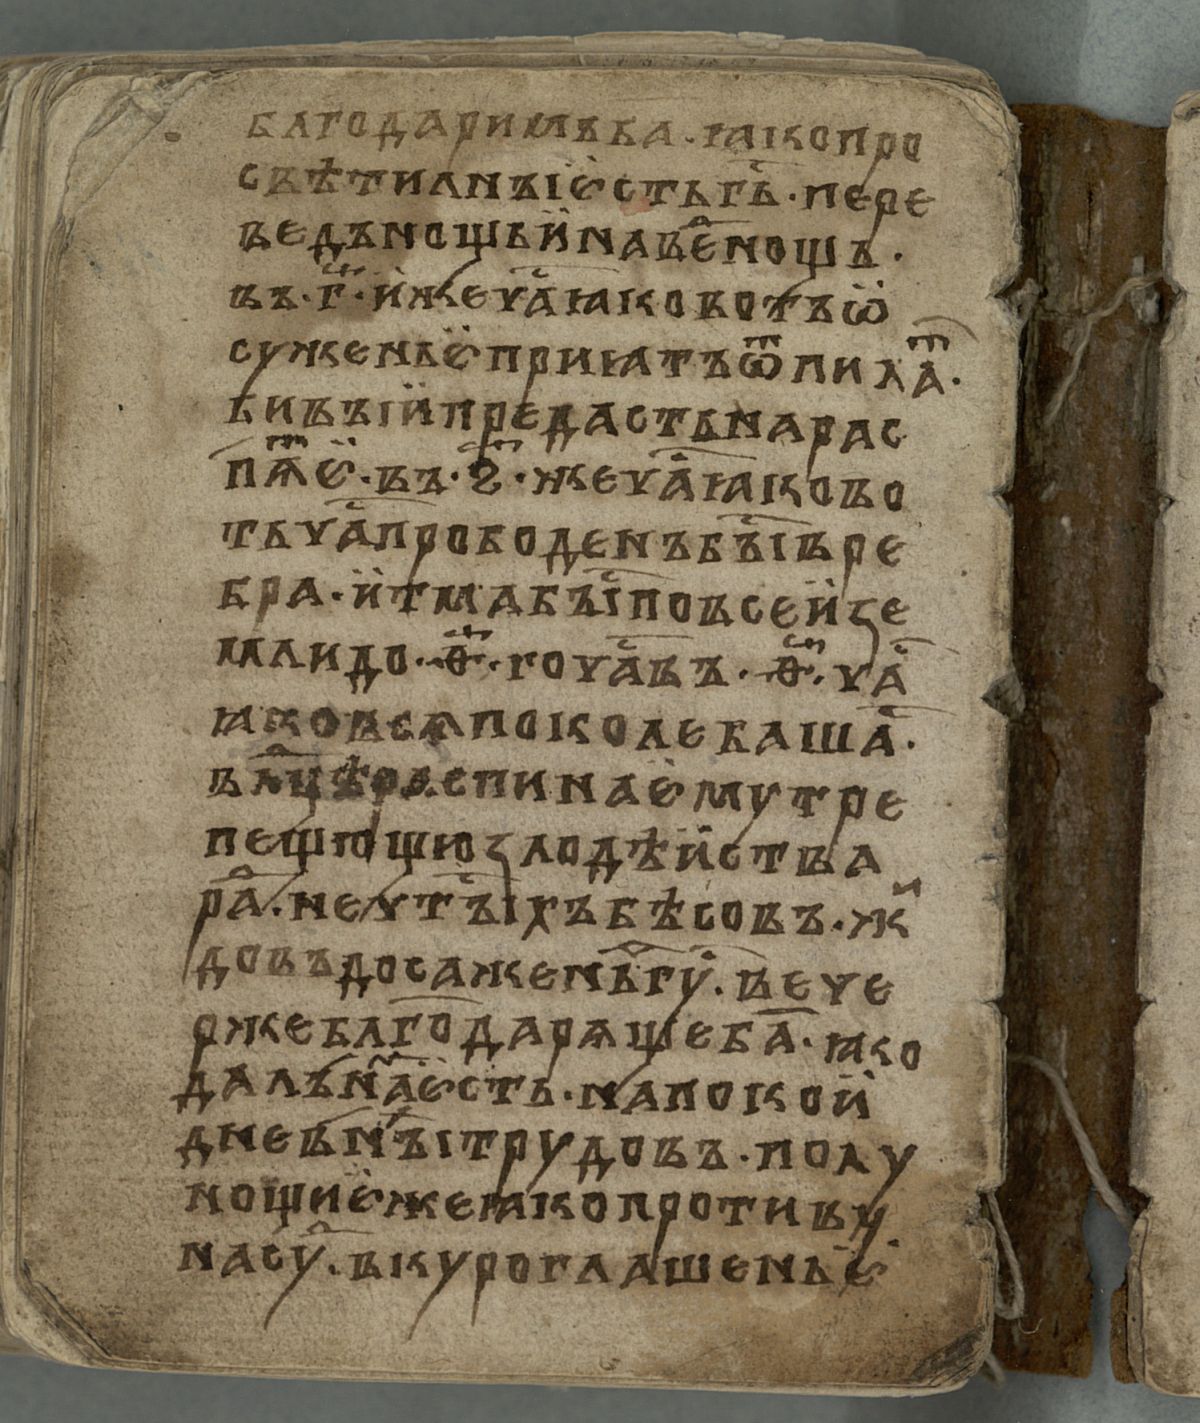 блгодаримъ ба · ꙗко про
свѣтилнъı ёсть гъ҇ · пере
ведъ нощь и҆ на ве҇ нощъ ·
въ · г҃ · и҆же ча҇ ꙗко во тъ ѡ҆
суженьё приꙗтъ ѿ пилат ·
бивъıй предасть на рас
пѧт̾ё · въ · ѕ҃ · же ча҇ ꙗко во
ть ча҇ прободенъ бъı҇ в ре
бра · и҆ тма бъı҇ по всей зе
мли до · ѳ҃ · го ча҇ въ · ѳ҃ · ча҇
ꙗко всѧ поколебаша҇ ·
влцѣ распинаёму тре
пещющю злодѣйства
ра҇ · нечтъı҇хъ бѣсовъ · жи
довъ досаженьı҇ гу҇ · вече
рже блгодарѧще ба҇ · ꙗко
далъ нам̾ ёсть · на покой
дневнъı҇ трудовъ · полу
нощиё же ꙗко противу
насу · в куроглашеньё